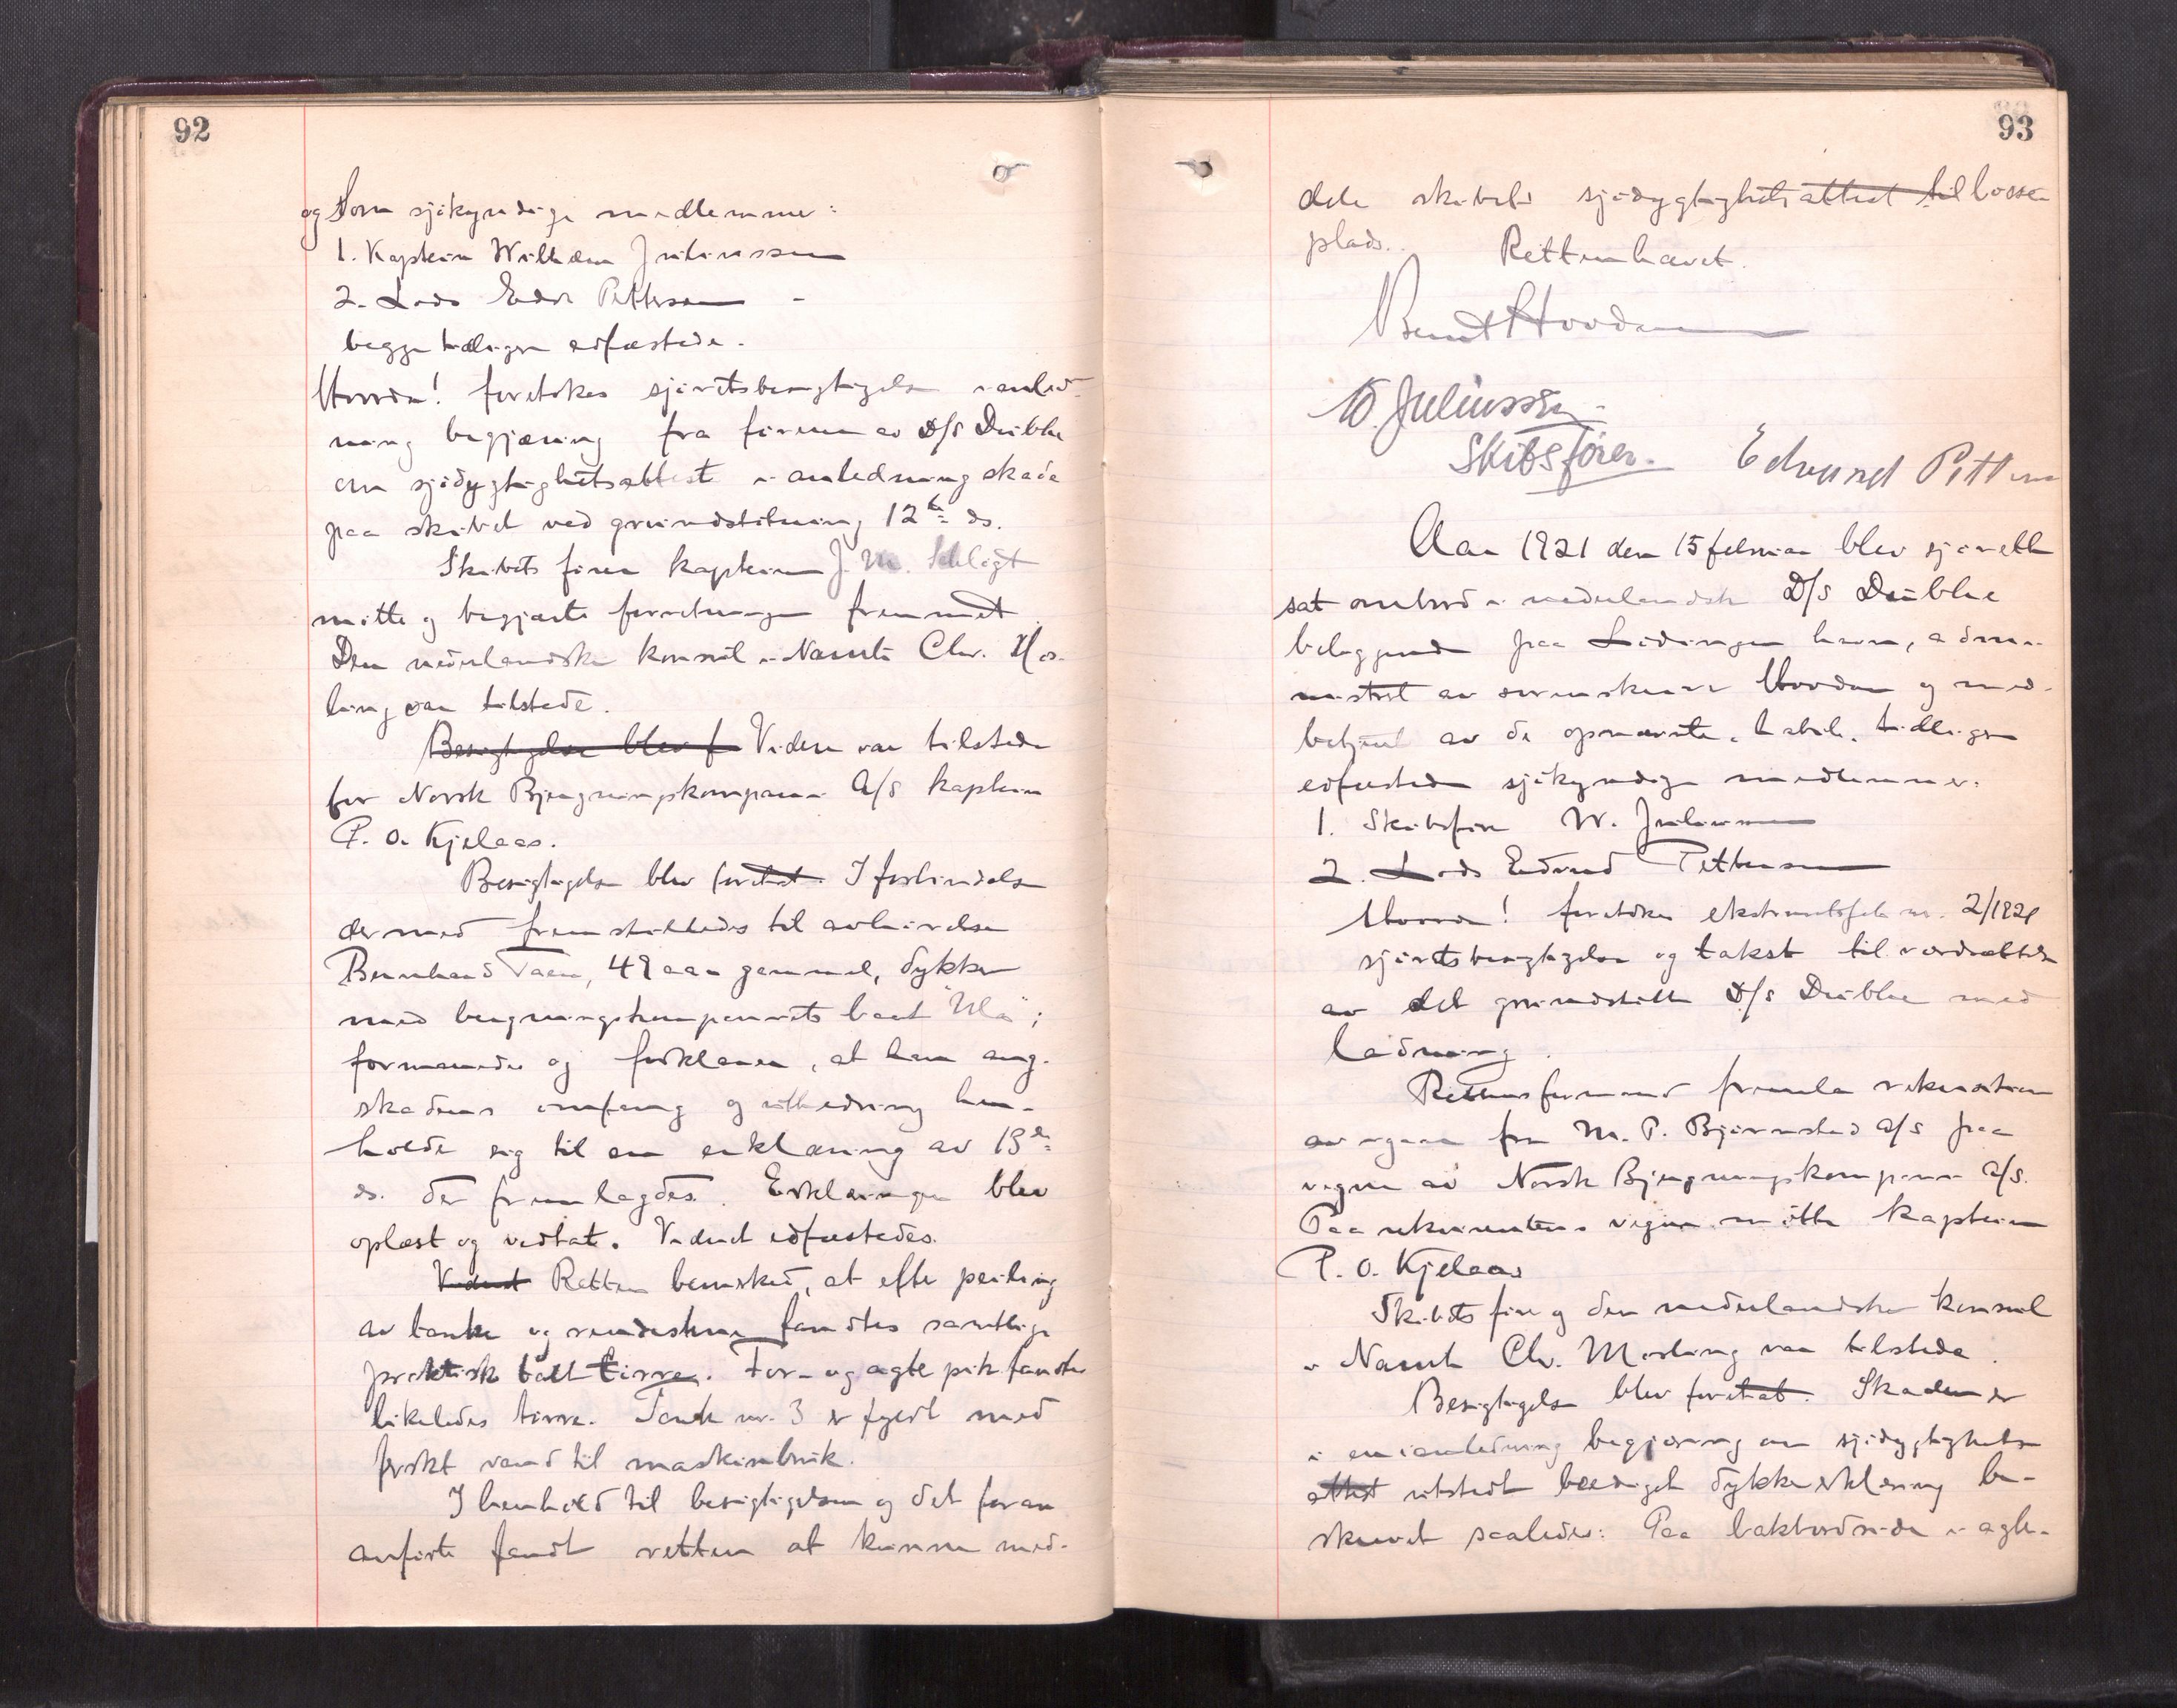 92
og Som sjøkyndige medlemmer:
1. Kaptein Wilhelm Juliussen
2. Lods Edv. Pettersen -
begge tidligere edfæstede.
Hvorda! foretokes sjøretsbesigtigelse i anled-
ning begjæring fra føreren av D/S Dubhe
om sjødygtighetsattest i anledning skade
paa skibet ved grundstøtning 12te ds.
Skibets fører kaptein J. M. Schligt
møtte og begjærte forretningen fremmet.
Den nederlandske konsul i Narvik Chr. Mos-
ling var tilstede.
Besigtigelse blev f Videre var tilstede
for Norsk Bjergningskompani A/S kaptein
P. O. Kjelaas.
Besigtigelse blev foretat. I forbindelse
dermed fremstilledes til avhørelse
Bernhard Vaen, 49 aar gammel, dykker
med bergningskompaniets baat "Ula";
formanedes og forklarer, at han ang.
skadens omfang og utbedring hen-
holder sig til en erklæring av 13de
ds. der fremlagdes. Erklæringen blev
oplæst og vedtat. Vidnet edfæstedes.
Vidnet Retten bemerket, at efter peiling
av tanker og rendestene fandtes samtlige
praktisk talt tørre. For- og agterpik fandtes
likeledes tørre. Tank nr. 3 er fyldt med
ferskt vand til maskinbruk.
I henhold til besigtigelsen og det foran
anførte fandt retten at kunne med-
93
dele skibet sjødygtighetsattest til losse
plads. Retten hævet.
Bernt Hovdan
W. Juliussen
Skibsfører. Edvard Pettersen
Aar 1921 den 15 februar blev sjørett
sat ombord i nederlandsk D/S Dubhe
beliggende paa Lødingen havn, admi-
nistrert av sorenskriver Hovdan og med-
betjent av de opnævnte, habile, tidligere
edfæstede sjøkyndige medlemmer:
1. Skibsfører W. Juliussen
2. Lods Edvard Pettersen
Hvorda! foretokes ekstraretssak nr. 2/1921
sjøretsbesigtigelse og takst til værdsættelse
av det grundstøtte D/S Dubhe med
ladning.
Rettens formand fremla rekvisition
av igaar fra M. P. Bjørnstad A/S paa
vegne av Norsk Bjergningskompani A/S.
Paa rekvirentens vegne møtte kaptein
P. O. Kjelaas
Skibets fører og den nederlandske konsul
i Narvik Chr. Mosling var tilstede.
Besigtigelse blev foretat. Skaden er
i en i anledning begjæring om sjødygtighets-
attest utstedt beediget dykkererklæring be-
skrevet saaledes: Paa bakbordside i agter-